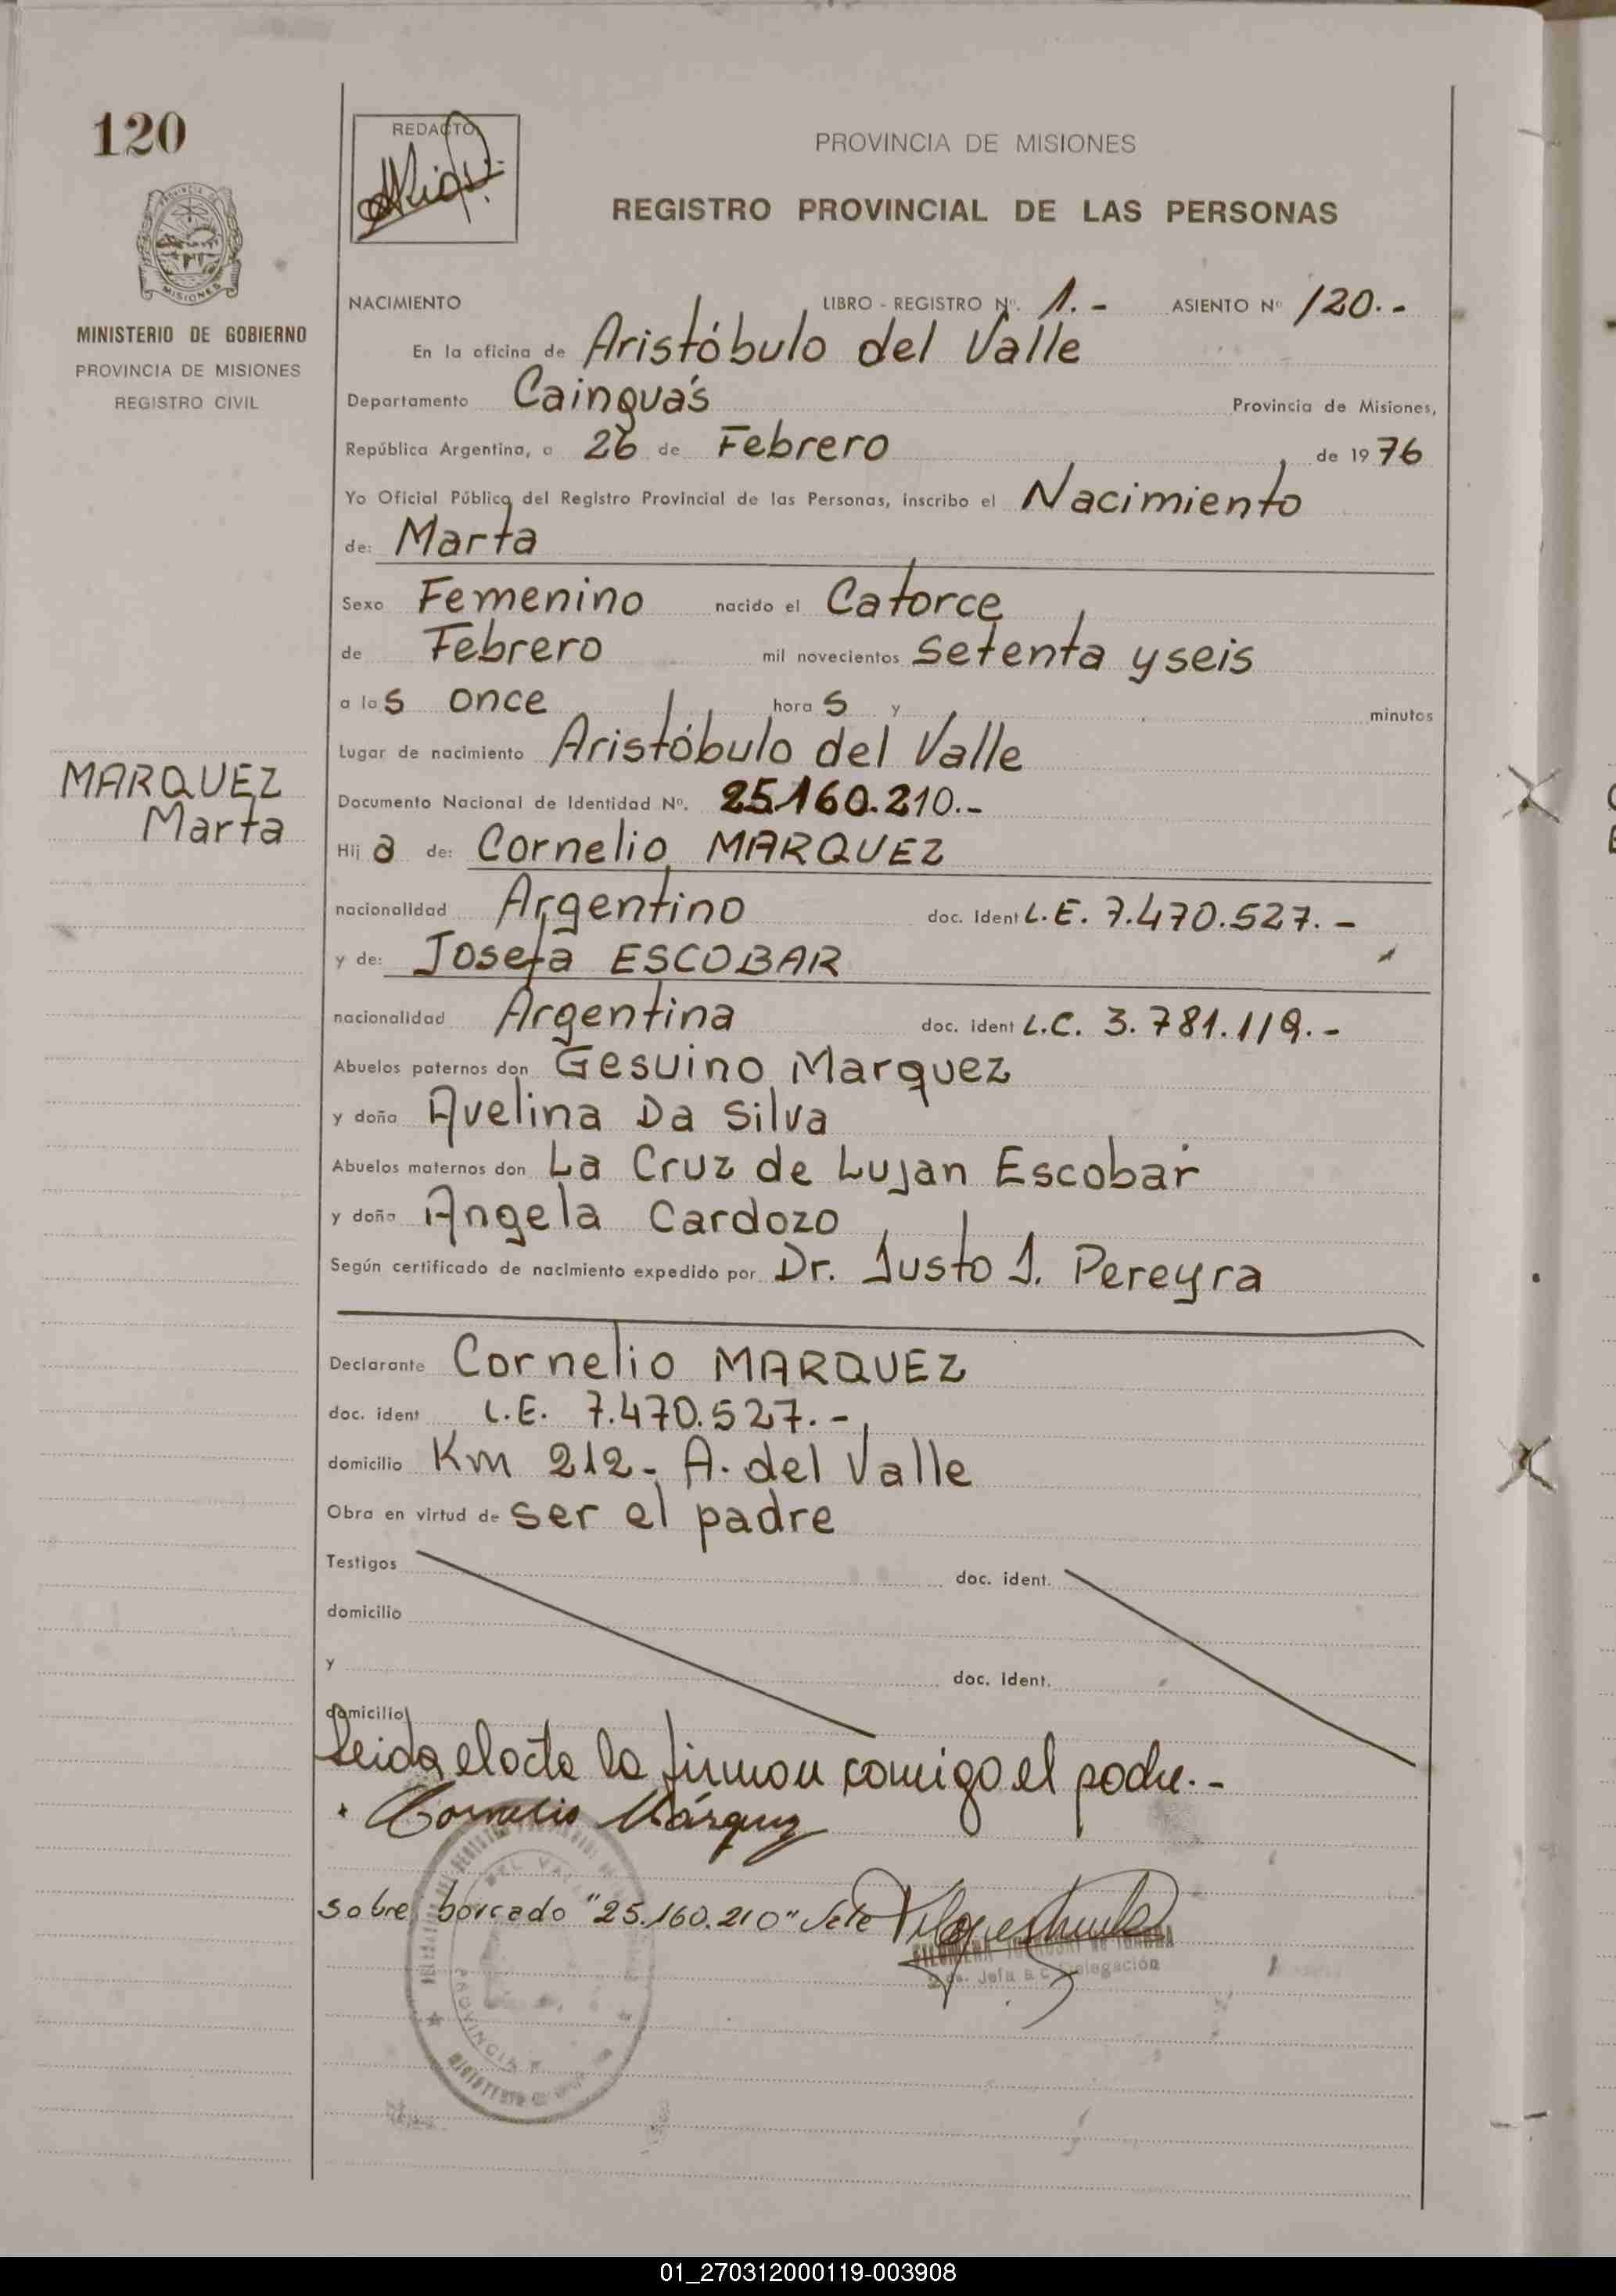 120
REDACTO
PROVINCIA DE MISIONES
REGISTRO PROVINCIAL DE LAS PERSONAS
MISIONES
MINISTERIO DE GOBIERNO
PROVINCIA DE MISIONES
REGISTRO CIVIL
NACIMIENTO LIBRO - REGISTRO Nº. 1.- ASIENTO Nº 120.-
En la oficina de Aristóbulo del Valle
Departamento Cainguás Provincia de Misiones,
República Argentina, a 26 de Febrero de 1976
Yo Oficial Público del Registro Provincial de las Personas, inscribo el Nacimiento
de: Marta
Sexo Femenino nacido el Catorce
de Febrero mil novecientos setenta y seis
a las once horas y minutos
Lugar de nacimiento Aristóbulo del Valle
MARQUEZ
Marta
Documento Nacional de Identidad Nº. 25.160.210.-
Hija de: Cornelio MARQUEZ
nacionalidad Argentino doc. Ident L.E. 7.470.527.-
y de: Josefa ESCOBAR
nacionalidad Argentina doc. ident L.C. 3.781.119.-
Abuelos paternos don Gesuino Marquez
y doña Avelina Da Silva
Abuelos maternos don La Cruz de Lujan Escobar
y doña Angela Cardozo
Según certificado de nacimiento expedido por Dr. Justo J. Pereyra
Declarante Cornelio MARQUEZ
doc. ident L.E. 7.470.527.-
domicilio Km 212- A. del Valle
Obra en virtud de ser el padre
Testigos doc. ident.
domicilio
y doc. Ident.
domicilio
Leida el acta la firman comigo el padre.-
Cornelio Márquez
sobre borrado "25.160.210" Vale
Jefa a c Delegación
PROVINCIA
01_270312000119-003908